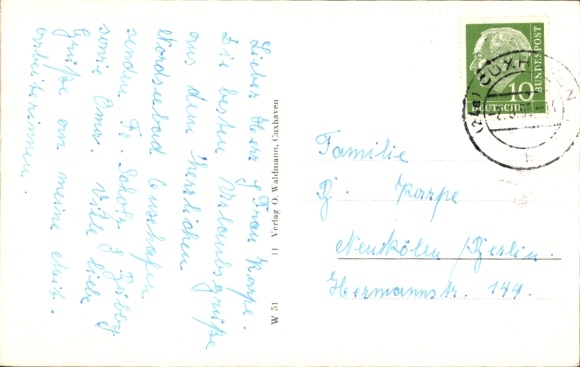 Lieber Herr & Frau Karpe.
Die besten Urlaubsgrüße
aus dem herrlichen
Nordseebad Cuxhafen
senden Fr. Scholz & Bübby
sowie Omi. Viele liebe
Grüße an meine Mit.
arbeiterinnen.
W 51 11 Verlag O. Waldmann, Cuxhaven
10
DEUTSCHE
BUNDESPOST
CUXHAVEN
Familie
Karpe
Neukölln /Berlin.
Hermannstr. 149.